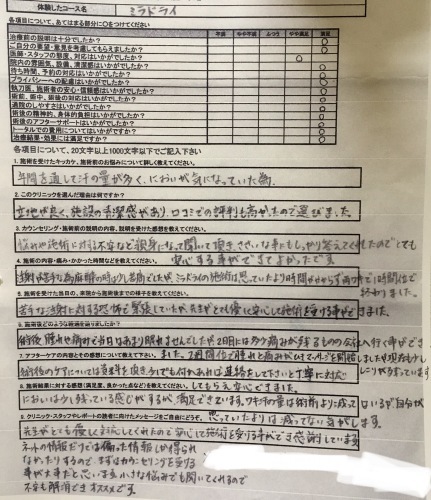 体験したコース名 ミラドライ
各項目について、あてはまる部分に○をつけてください
不満 やや不満 ふつう やや満足 満足
治療前の説明は十分でしたか? ○
ご自分の要望・意見を考慮してもらえましたか? ○
医師・スタッフの態度、対応はいかがでしたか? ○
院内の雰囲気、設備、清潔感はいかがでしたか? ○
待ち時間、予約の対応はいかがでしたか? ○
プライバシーへの配慮はいかがでしたか? ○
執刀医、施術者の安心・信頼感はいかがでしたか? ○
術前、術中、術後の対応はいかがでしたか? ○
通院のしやすさはいかがでしたか? ○
術後の精神的、身体的負担はいかがでしたか? ○
術後のアフターサポートはいかがでしたか? ○
トータルでの費用についてはいかがですか? ○
治療結果・効果には満足ですか? ○
各項目について、20文字以上1000文字以下でご記入下さい
1. 施術を受けたキッカケ、施術前のお悩みについて詳しく教えてください。
年間を通して汗の量が多く、においが気になっていた為。
2. このクリニックを選んだ理由は何ですか?
立地が良く、施設の清潔感があり、口コミでの評判も高かったので選びました。
3. カウンセリング・施術前の説明の内容、説明を受けた感想を教えてください。
悩みや施術に対する不安など親身になって聞いて頂き、ささいな事にもしっかり答えてくれたのでとても
安心する事ができてよかったです。
4. 施術の内容・痛み・かかった時間などを教えてください。
注射が苦手な為麻酔の時は少し苦痛でしたが、ミラドライの施術は思っていたより時間がかからず両ワキで1時間位で
終わりました。
5. 施術を受けた当日の、来院から施術後までの様子を教えてください。
苦手な注射に対する恐怖と緊張していたが、先生がとても優しく安心して施術を受ける事ができました。
6. 施術後どのような経過を辿りましたか?
術後、腫れや痛みで当日はあまり眠れませんでしたが2日目には多少痛みが残るものの会社へ行く事ができ
ました。2週間位で腫れと痛みがひきマッサージを開始しましたが現在も少し
しこりが残っています
7. アフターケアの内容とその感想について教えて下さい。
術後のケアについては資料を頂き、少しでも何かあれば連絡をして下さいと丁寧に対応
してもらえ安心でました。
8. 施術結果に対する感想(満足度、良かった点など)を教えてください。
においは少し残っている感じがするが満足できています。ワキ汗の量は術前より減って
いるが自分が
思っていたよりは減ってない気がします。
9. クリニック・スタッフやレポートの読者に向けたメッセージをご自由にどうぞ。
先生がとても優しく対応してくれたので安心して施術を受ける事ができ感謝しています。
ネットの情報だけでは偏った情報しか得られ
なかったりするので、まずはカウンセリングを受ける
事が大事だと思います。小さな悩みでも聞いてくれるので
不安も解消できオススメです。